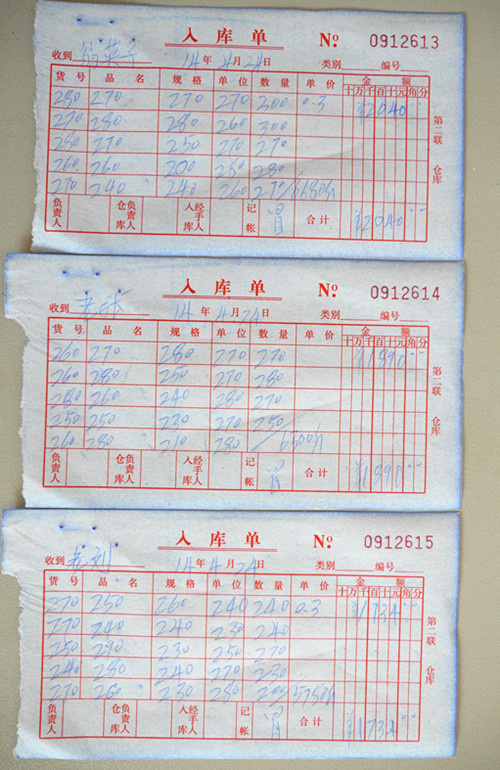 入库单 № 0912613
收到 14年4月24日 类别 编号
货号 品名 规格 单位 数量 单价 金额
十万千百十元角分
280 270 270 270 300 0.3 ¥2040
270 280 280 260 300
280 270 250 270 270
260 260 200 280 280
270 240 240 260
负责人 仓库负责人 入库经手人 记帐 合计 ¥2040
第二联 仓库
入库单 № 0912614
收到 老张 14年4月24日 类别 编号
货号 品名 规格 单位 数量 单价 金额
十万千百十元角分
260 270 280 270 270 ¥1890
260 280 250 270 280
280 260 240 280 270
250 250 230 270 250
260 280 210 280 6300
负责人 仓库负责人 入库经手人 记帐 合计 ¥1890
第二联 仓库
入库单 № 0912615
收到 老刘 14年4月24日 类别 编号
货号 品名 规格 单位 数量 单价 金额
十万千百十元角分
270 250 260 240 240 0.3 ¥1734
270 240 240 230 240
250 290 230 250 270
240 280 240 270 230
270 260 230 280 200 5780
负责人 仓库负责人 入库经手人 记帐 合计 ¥1734
第二联 仓库